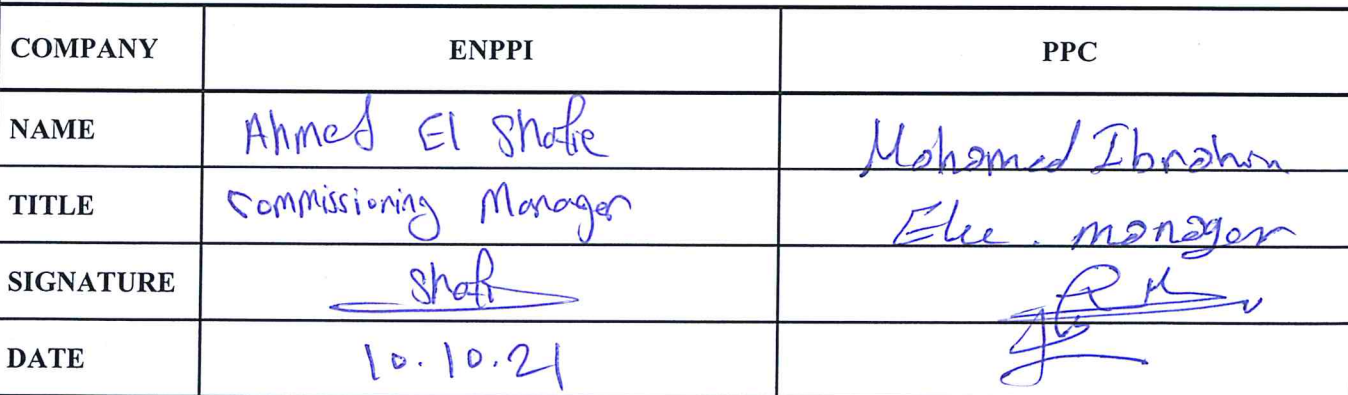 COMPANY ENPPI PPC
NAME Ahmed El Shafie Mohamed Ibrahim
TITLE Commissioning Manager Elec. manager
SIGNATURE Shafi
DATE 10.10.21